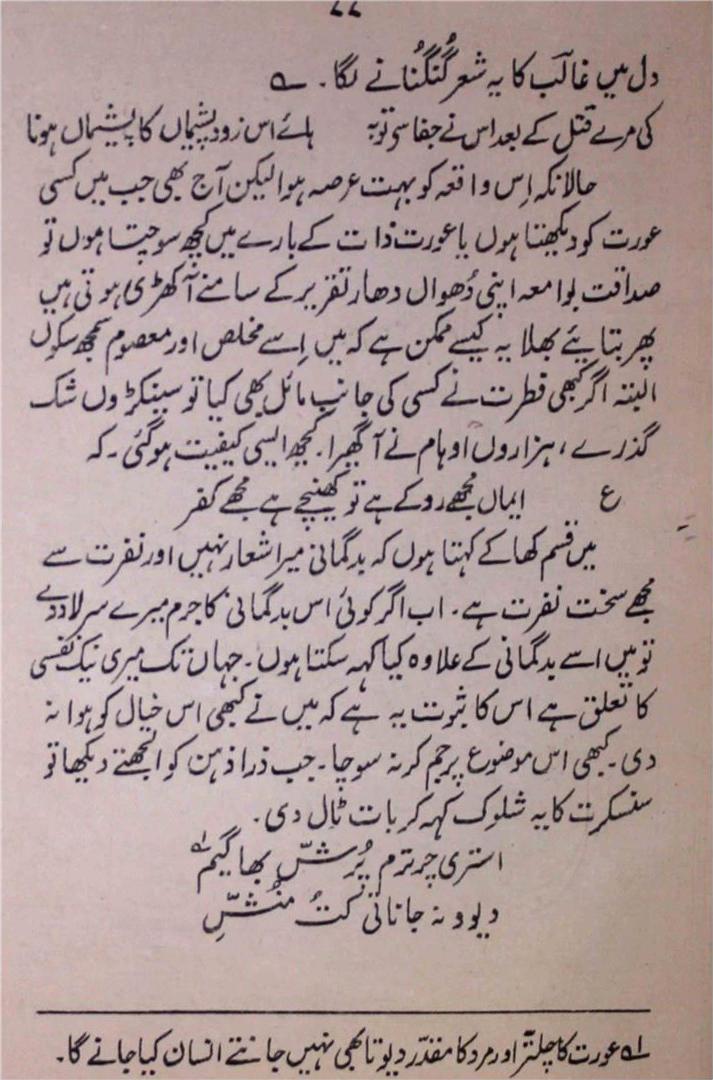 ۷۷
دل میں غالب کا یہ شعر گنگنانے لگا۔ ؎
کی مرے قتل کے بعد اس نے جفا سے توبہ ہائے اس زود پشیماں کا پشیماں ہونا
حالانکہ اِس واقعہ کو بہت عرصہ ہوا لیکن آج بھی جب میں کسی
عورت کو دیکھتا ہوں یا عورت ذات کے بارے میں کچھ سوچتا ہوں تو
صداقت بوا معہ اپنی دُھواں دھار تقریر کے سامنے آکھڑی ہوتی ہیں
پھر بتایئے بھلا یہ کیسے ممکن ہے کہ میں اِسے مخلص اور معصوم سمجھ سکوں
البتہ اگر کبھی فطرت نے کسی کی جانب مائل بھی کیا تو سینکڑوں شک
گذرے، ہزاروں اوہام نے آگھیرا۔ کچھ ایسی کیفیت ہوگئی۔ کہ
ع ایماں مجھے روکے ہے تو کھینچے ہے مجھے کفر
میں قسم کھا کے کہتا ہوں کہ بدگمانی میرا شعار نہیں اور نفرت سے
مجھے سخت نفرت ہے۔ اب اگر کوئی اس بدگمانی کا جرم میرے سر لاد دے
تو میں اسے بدگمانی کے علاوہ کیا کہہ سکتا ہوں۔ جہاں تک میری نیک نفسی
کا تعلق ہے اس کا ثبوت یہ ہے کہ میں نے کبھی اس خیال کو ہوا نہ
دی۔ کبھی اس موضوع پر جم کر نہ سوچا۔ جب ذرا ذہن کو الجھتے دیکھا تو
سنسکرت کا یہ شلوک کہہ کر بات ٹال دی۔
استری چرترم پُرشسّ بھاگیم ؂۱
دیوو نہ جاناتی کتُ منُشسِّ
؂۱ عورت کا چلتر اور مرد کا مقدّر دیوتا بھی نہیں جانتے انسان کیا جانے گا۔